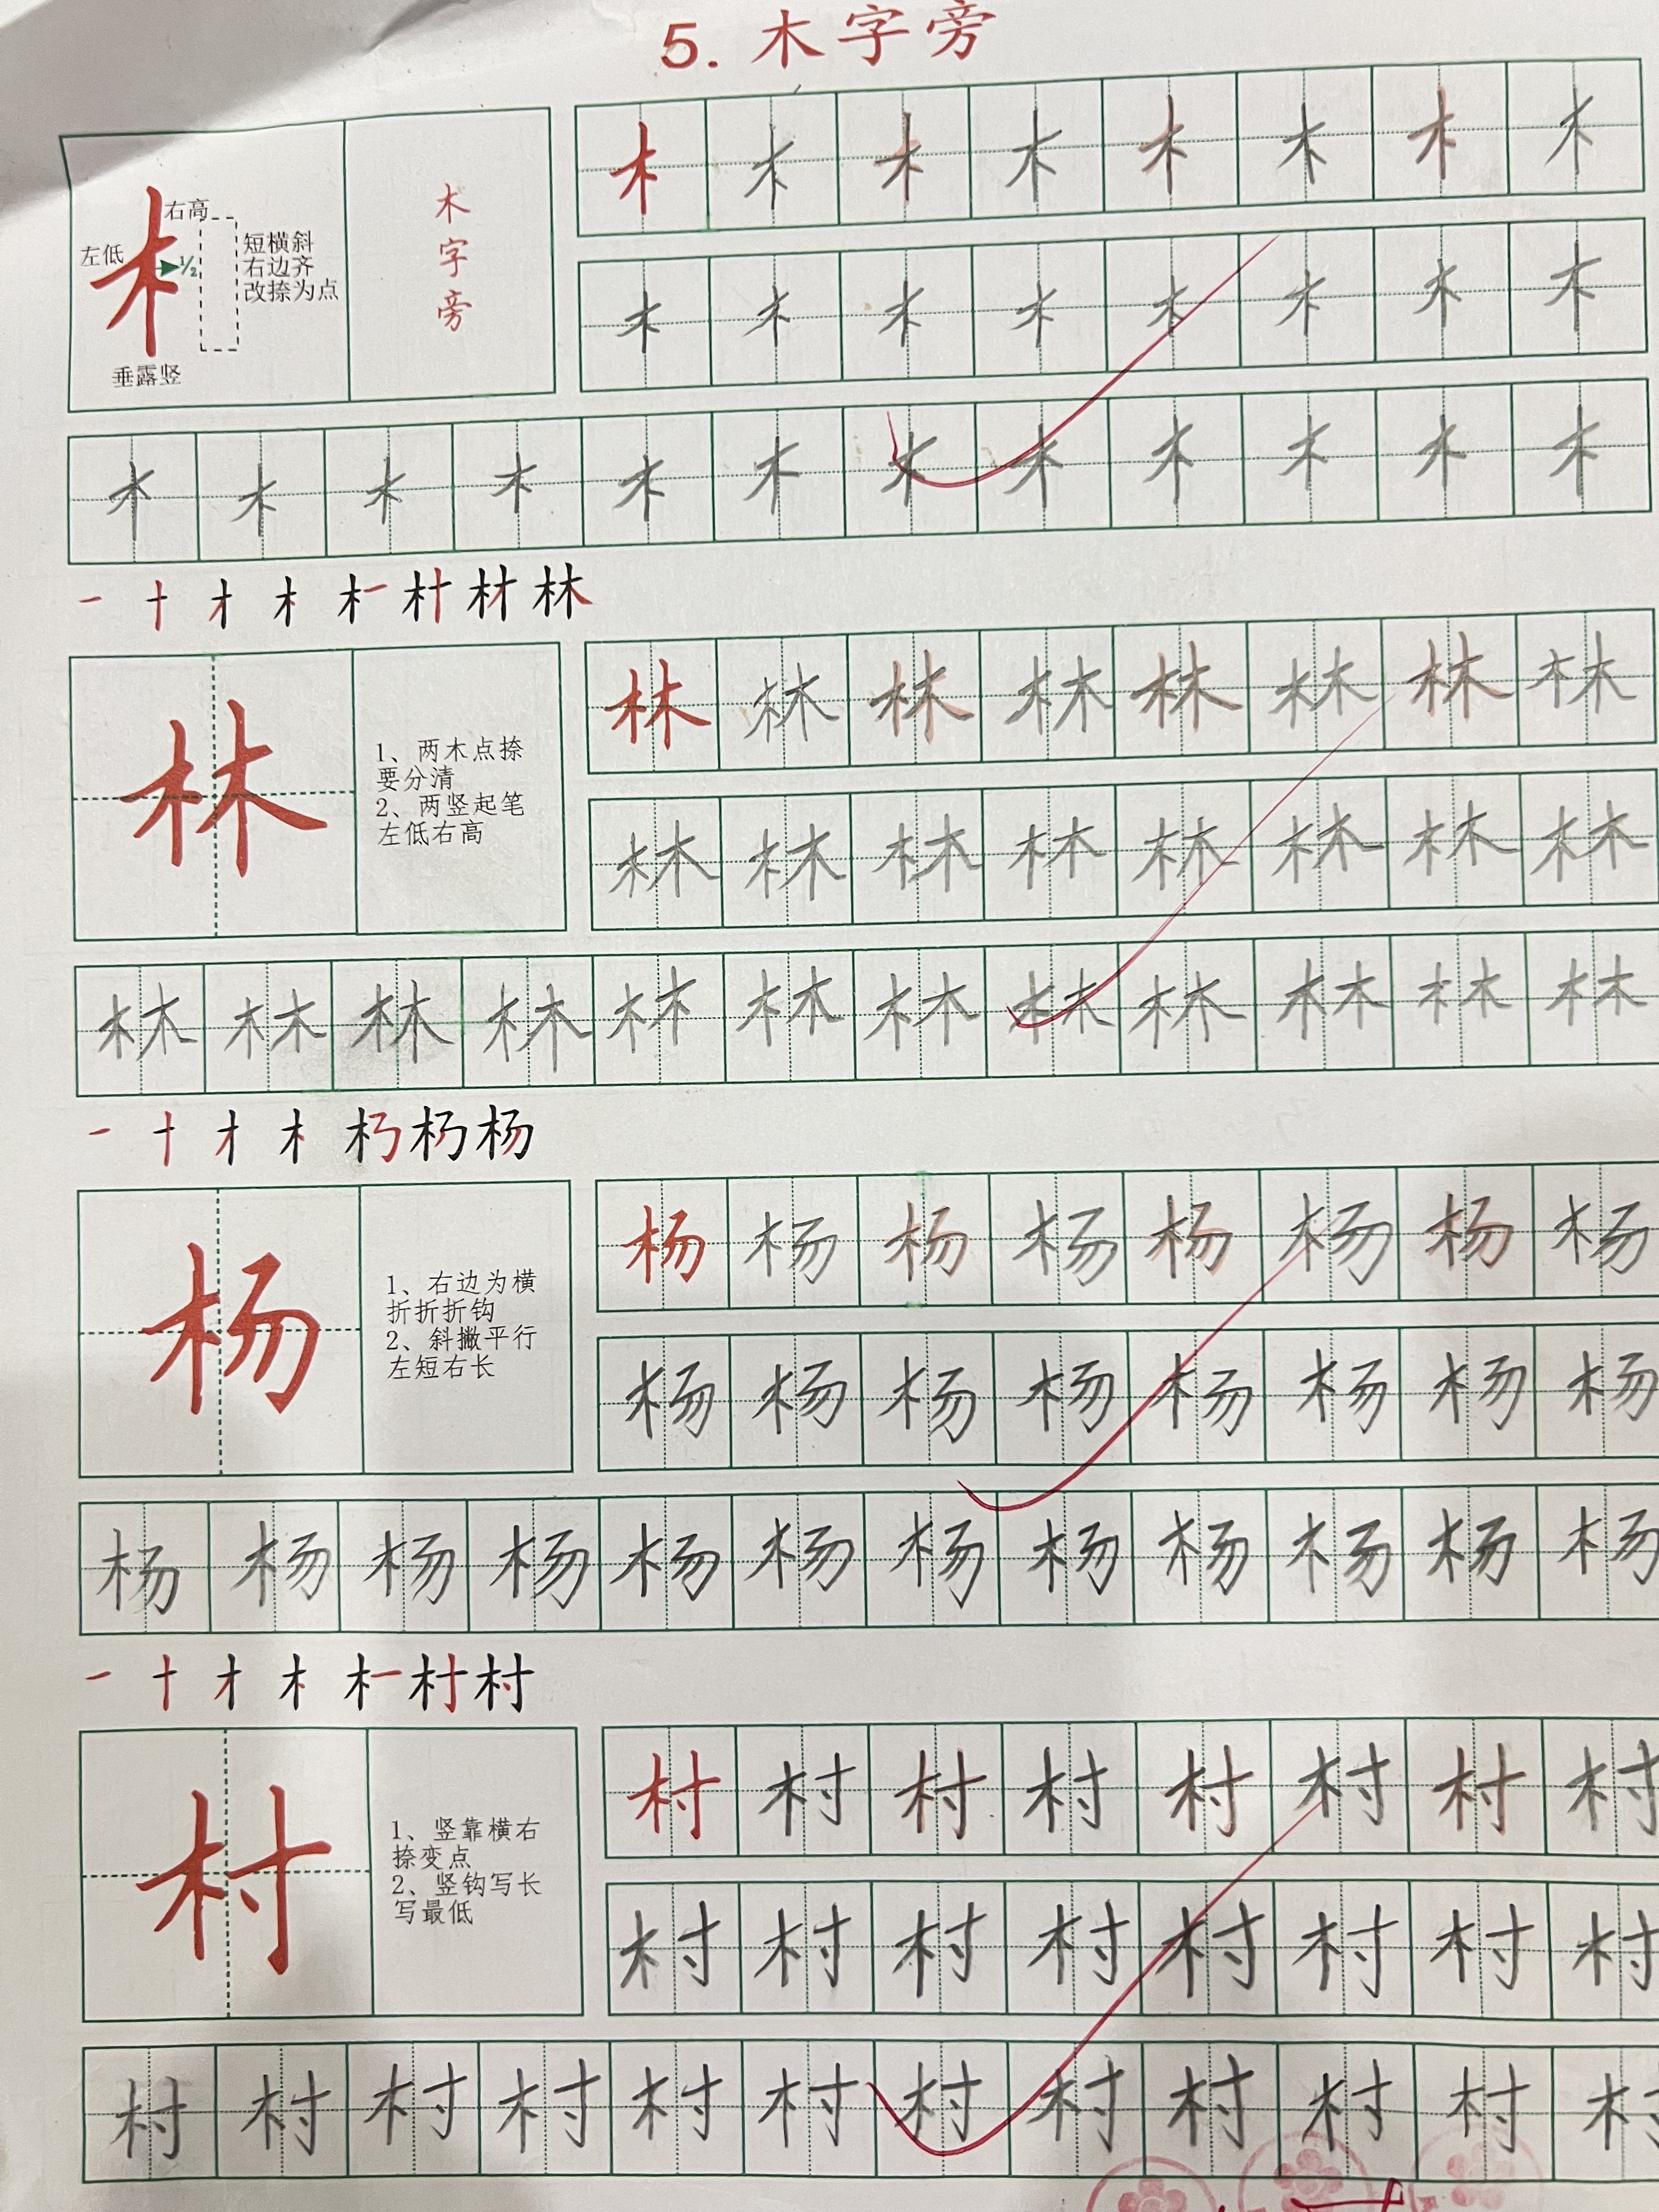 5. 木字旁
左低
右高
½
短横斜
右边齐
改捺为点
垂露竖
木
字
旁
木 木 木 木 木 木 木 木
木 木 木 木 木 木 木 木
木 木 木 木 木 木 木 木 木 木 木 木
林
1、两木点捺
要分清
2、两竖起笔
左低右高
林 林 林 林 林 林 林 林
林 林 林 林 林 林 林 林
林 林 林 林 林 林 林 林 林 林 林 林
杨
杨
1、右边为横
折折折钩
2、斜撇平行
左短右长
杨 杨 杨 杨 杨 杨 杨 杨
杨 杨 杨 杨 杨 杨 杨 杨
杨 杨 杨 杨 杨 杨 杨 杨 杨 杨 杨 杨
村
村
1、竖靠横右
捺变点
2、竖钩写长
写最低
村 村 村 村 村 村 村 村
村 村 村 村 村 村 村 村
村 村 村 村 村 村 村 村 村 村 村 村